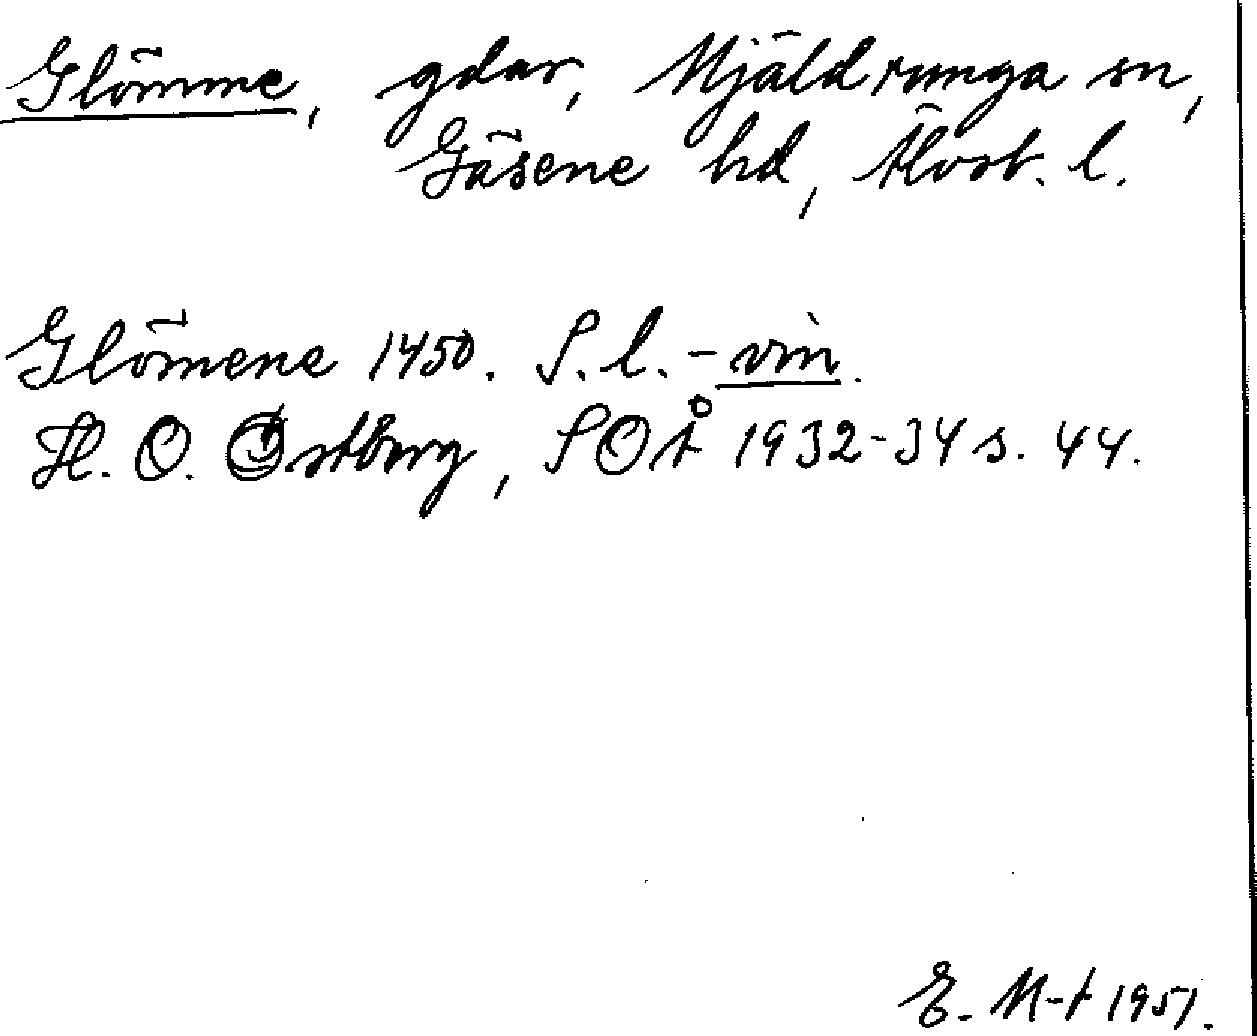 Glömme, gdar, Mjäldrunga sn,
Gäsene hd, Älvsb. l.
Glömene 1450. S. l. -vin.
H. O. Östberg, SOÅ 1932-34 s. 44.
E. M-t 1951.